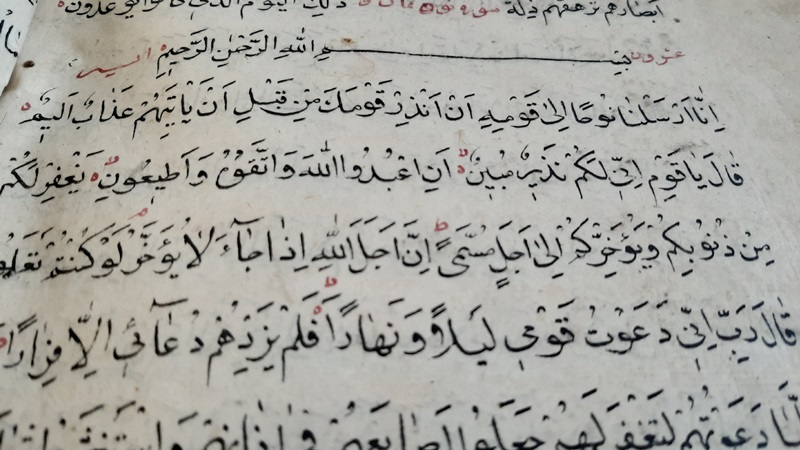 ابصارهم ترهقهم ذلة سورة نوح ذلك اليوم الذي كانوا يوعدون
عشرون بسم الله الرحمن الرحيم
اِنَّا اَرْسَلْنَا نُوحًا اِلٰى قَوْمِهِ اَنْ اَنْذِرْ قَوْمَكَ مِنْ قَبْلِ اَنْ يَاْتِيَهُمْ عَذَابٌ اَلِيمٌ
قَالَ يَا قَوْمِ اِنِّى لَكُمْ نَذِيرٌ مُبِينٌ اَنِ اعْبُدُوا اللهَ وَاتَّقُوهُ وَاَطِيعُونِ يَغْفِرْ لَكُمْ
مِنْ ذُنُوبِكُمْ وَيُؤَخِّرْكُمْ اِلٰى اَجَلٍ مُسَمًّى اِنَّ اَجَلَ اللهِ اِذَا جَاءَ لَا يُؤَخَّرُ لَوْ كُنْتُمْ
قَالَ رَبِّ اِنِّى دَعَوْتُ قَوْمِى لَيْلًا وَنَهَارًا فَلَمْ يَزِدْهُمْ دُعَائِى اِلَّا فِرَارًا
دَعَوْتُهُمْ لِتَغْفِرَ لَهُمْ جَعَلُوا اَصَابِعَهُمْ فِى اٰذَانِهِمْ